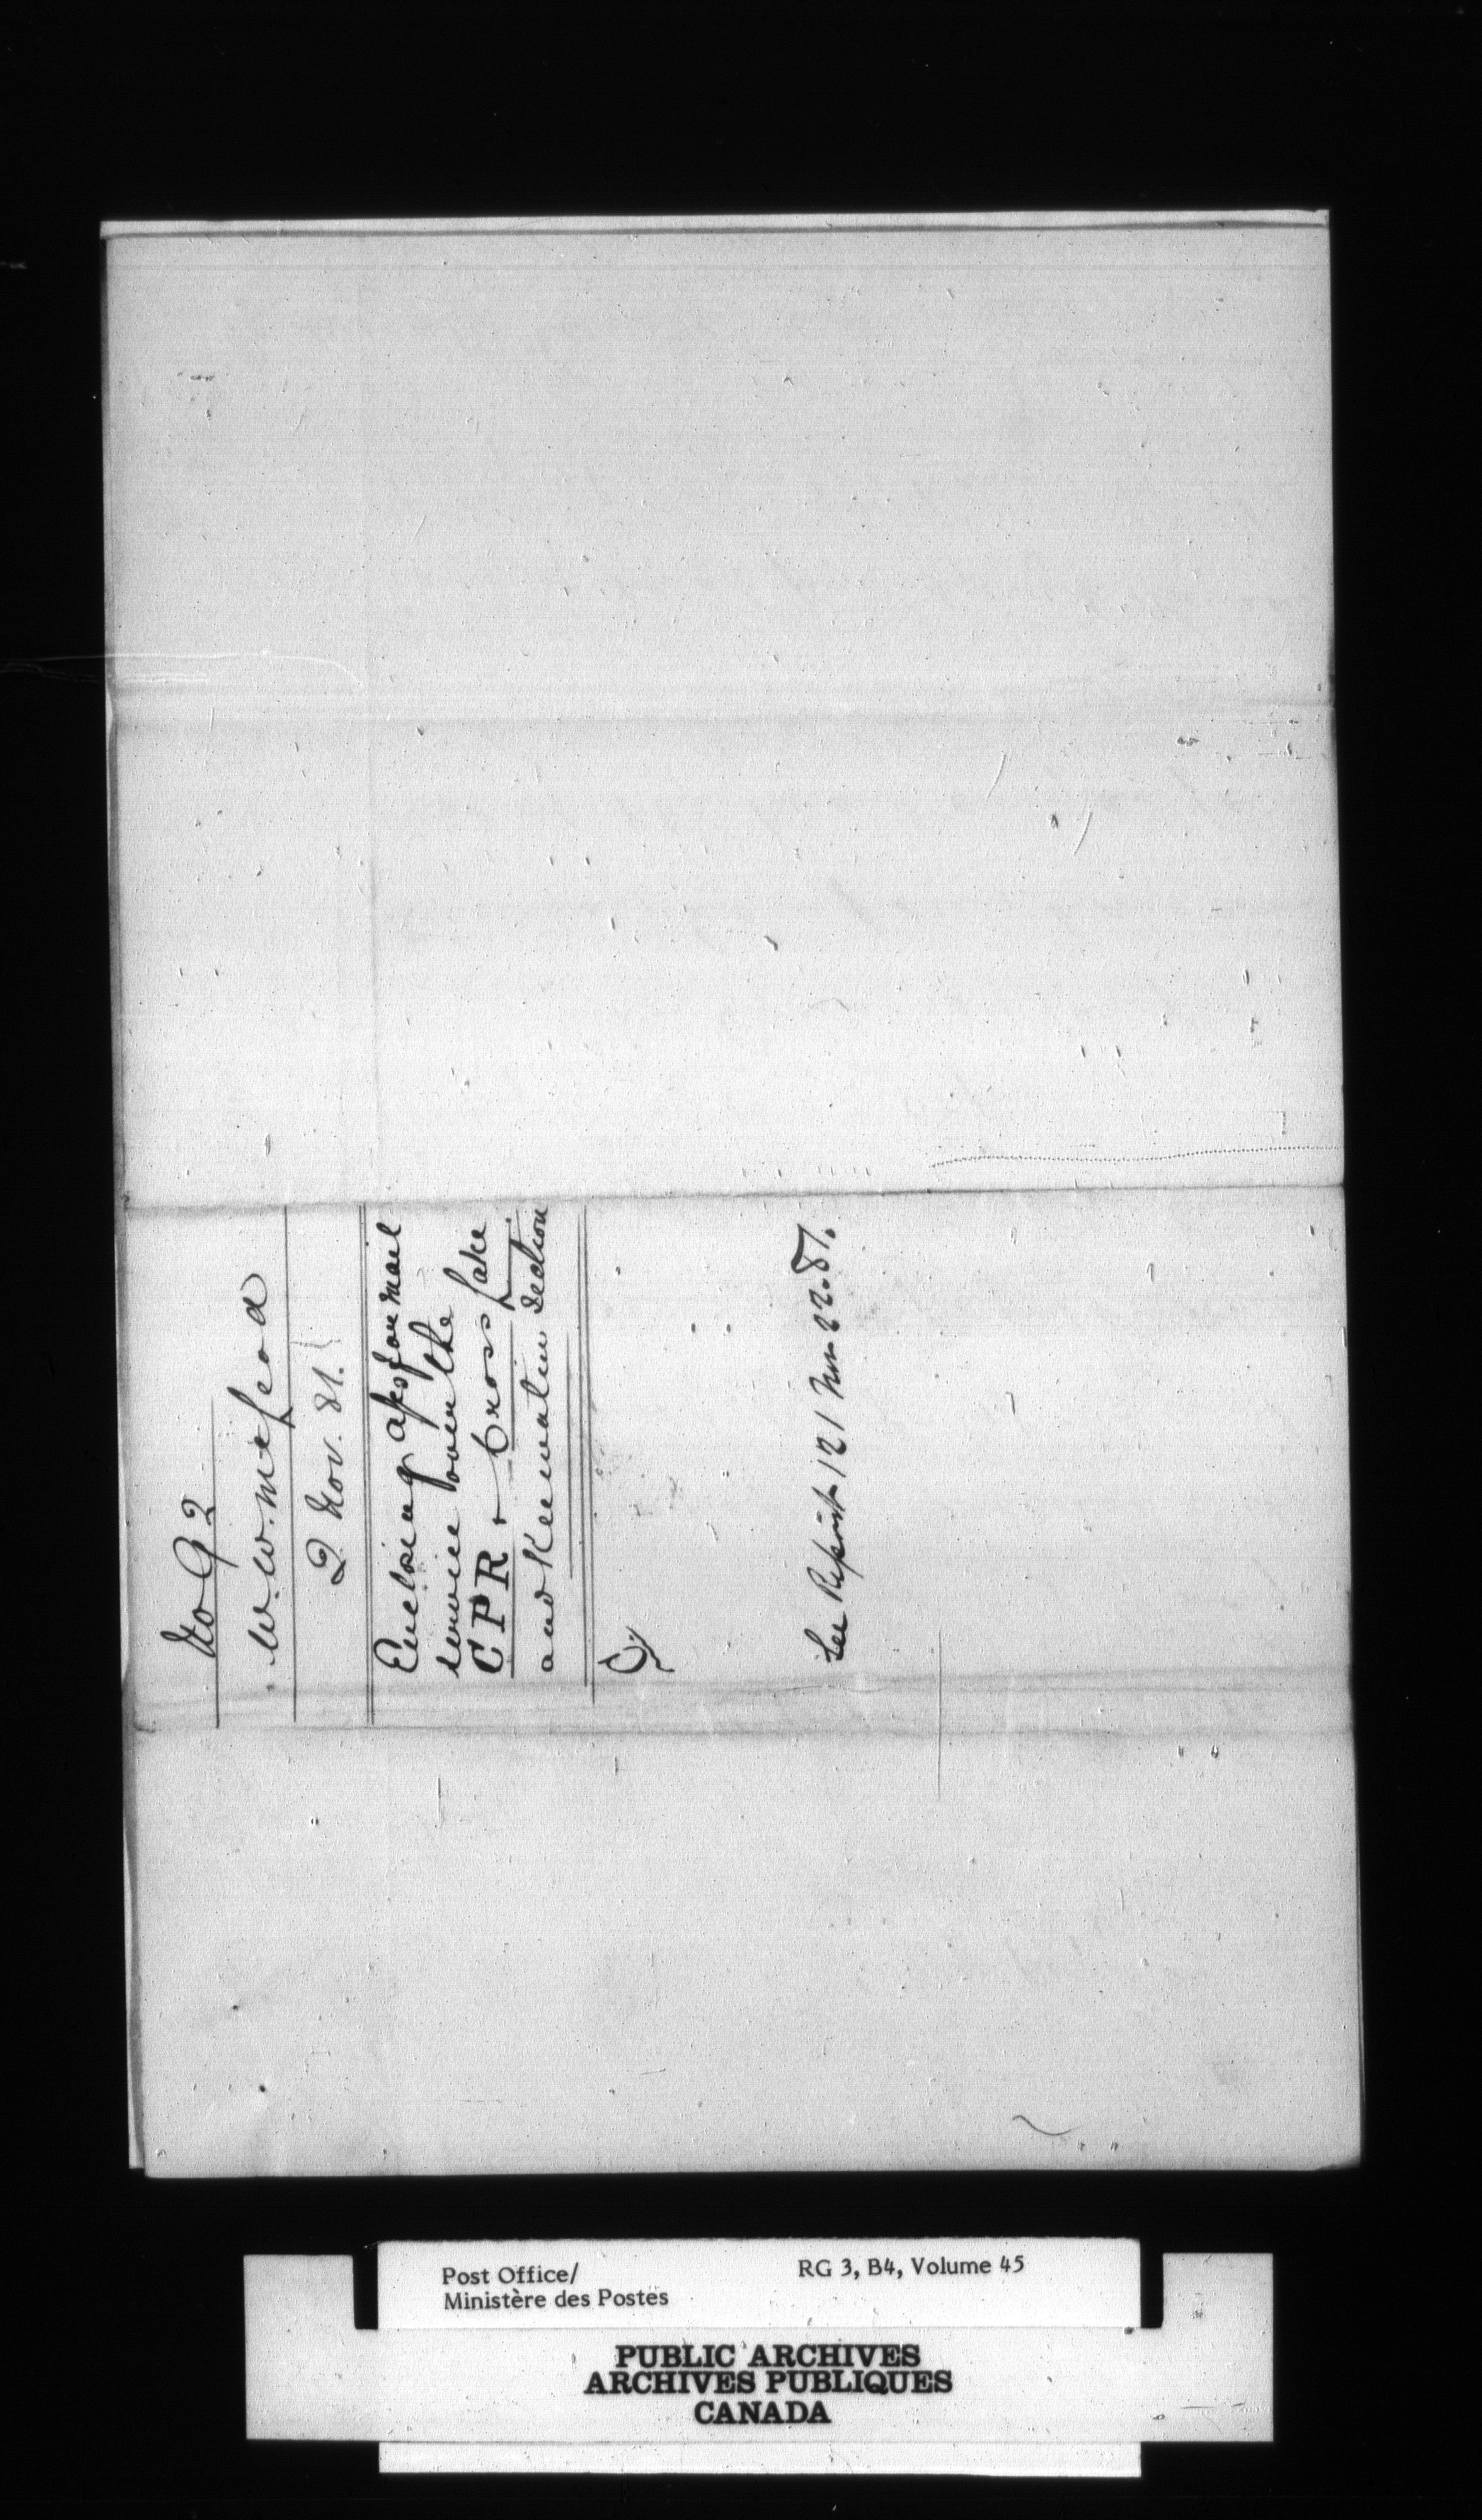 No 92
W. W. McLeod
2 Nov. 81.
Enclosing a/cs for mail
service over the
CPR + Cross Lake
and Keewatin Section
See Report 121 Nov 22. 81.
Post Office/
Ministère des Postes
RG 3, B4, Volume 45
PUBLIC ARCHIVES
ARCHIVES PUBLIQUES
CANADA